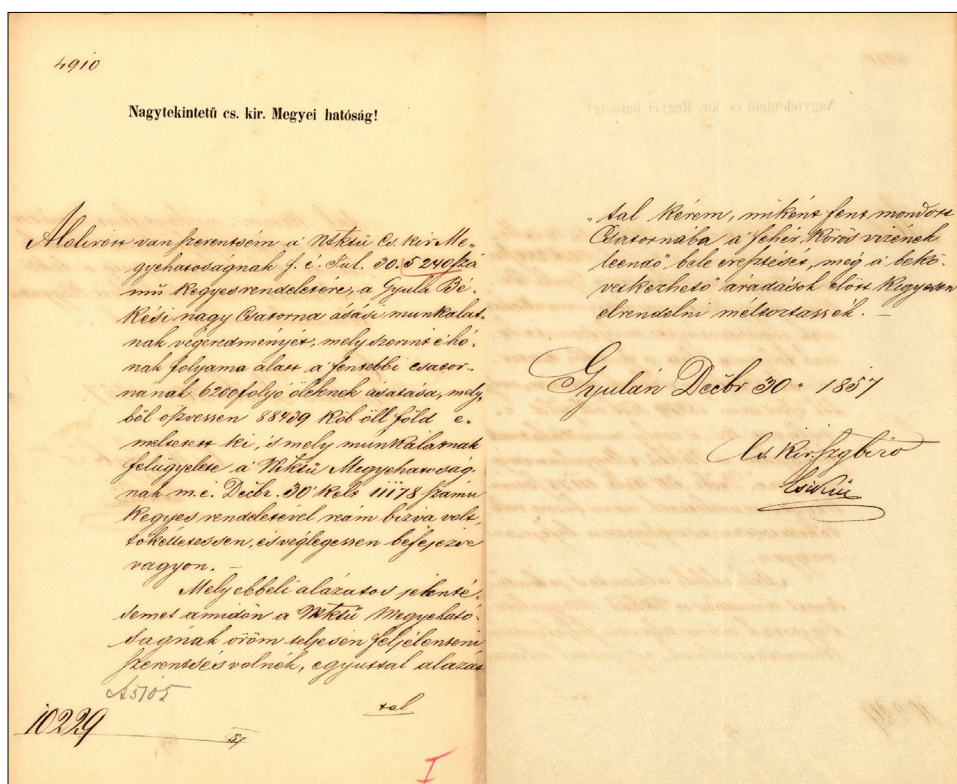 4910
Nagytekintetű cs. kir. Megyei hatóság!
Alolirott van szerentsém a Ntktü Cs kir Me-
gyehatoságnak f. é. Jul. 30. 5240 szá
mú Kegyes rendeletere, a Gyula Bé-
kési nagy Csatorna ásási munkálat
nak végeredményét, mely szerint é hó-
nak folyama alatt a fentebbi csator-
nanak 6200 folyó ölének ásatása, mely,
ből öszvessen 88439 Köb öll föld e-
meltetett ki, 's mely munkálatnak
felügyelete a Ntktü Megyehatóság-
nak m. é. Decbr. 30 kelt 11178 számu
Kegyes rendeletével reám bizva volt,
tökélletessen, és véglegessen befejezve
vagyon. –
Mely ebbeli alázatos jelenté-
semet amidőn a Ntktü Megyeható-
ságnak öröm teljesen feljelenteni
szerentsés volnék, egyuttal alázat
tal
A5105
10229
57
I
"tal Kérem, miként fent mondott
Csatornába a fehér Körös vizének
leendő bele eresztését, még a bekö-
vetkezhető áradások előtt Kegyesen
elrendelni méltoztassék. –
Gyulán Decbr 30. 1857
Cs. Kir. szgbiró